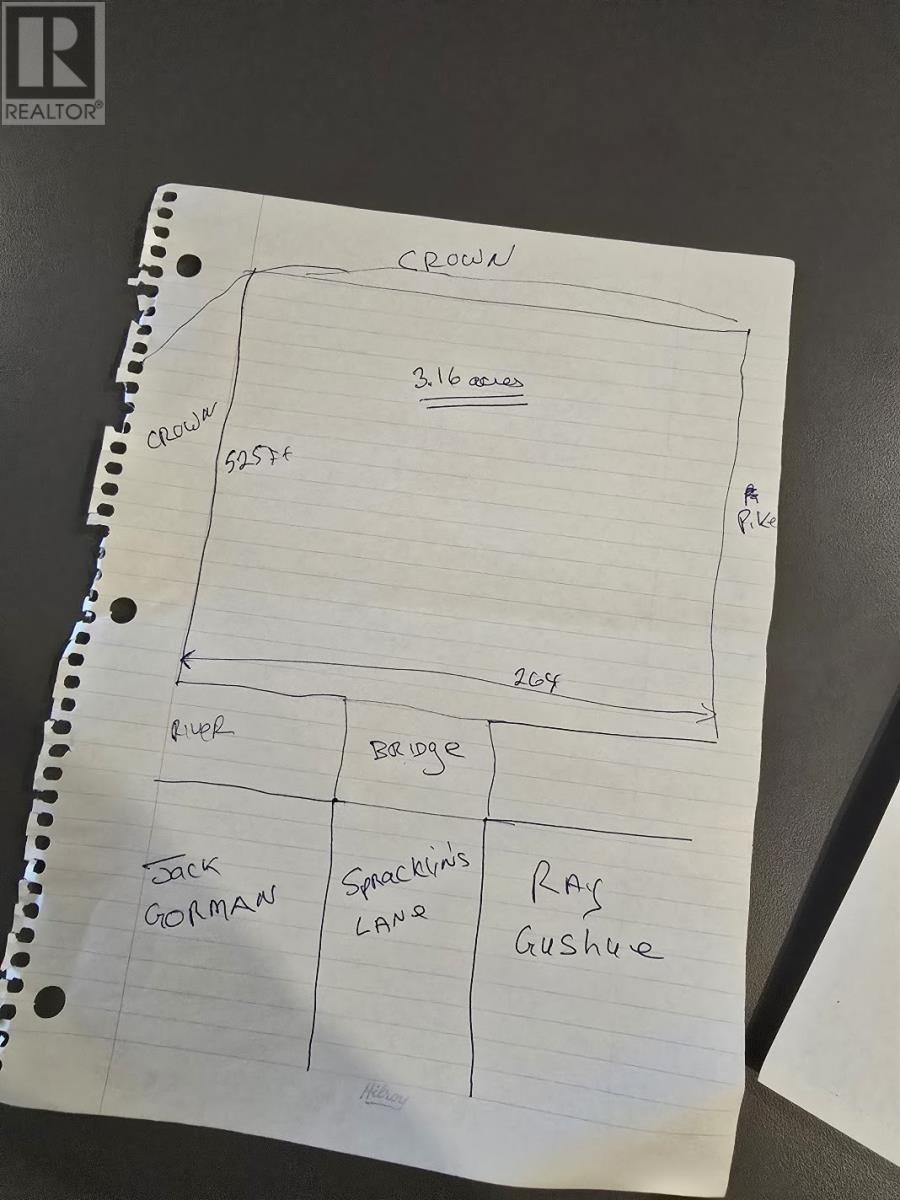 REALTOR®
CROWN
3.16 acres
CROWN
525 Ft
Pike
264
RIVER
BRIDGE
JACK
GORMAN
Spracklin's
LANE
RAY
Gushue
Hilroy